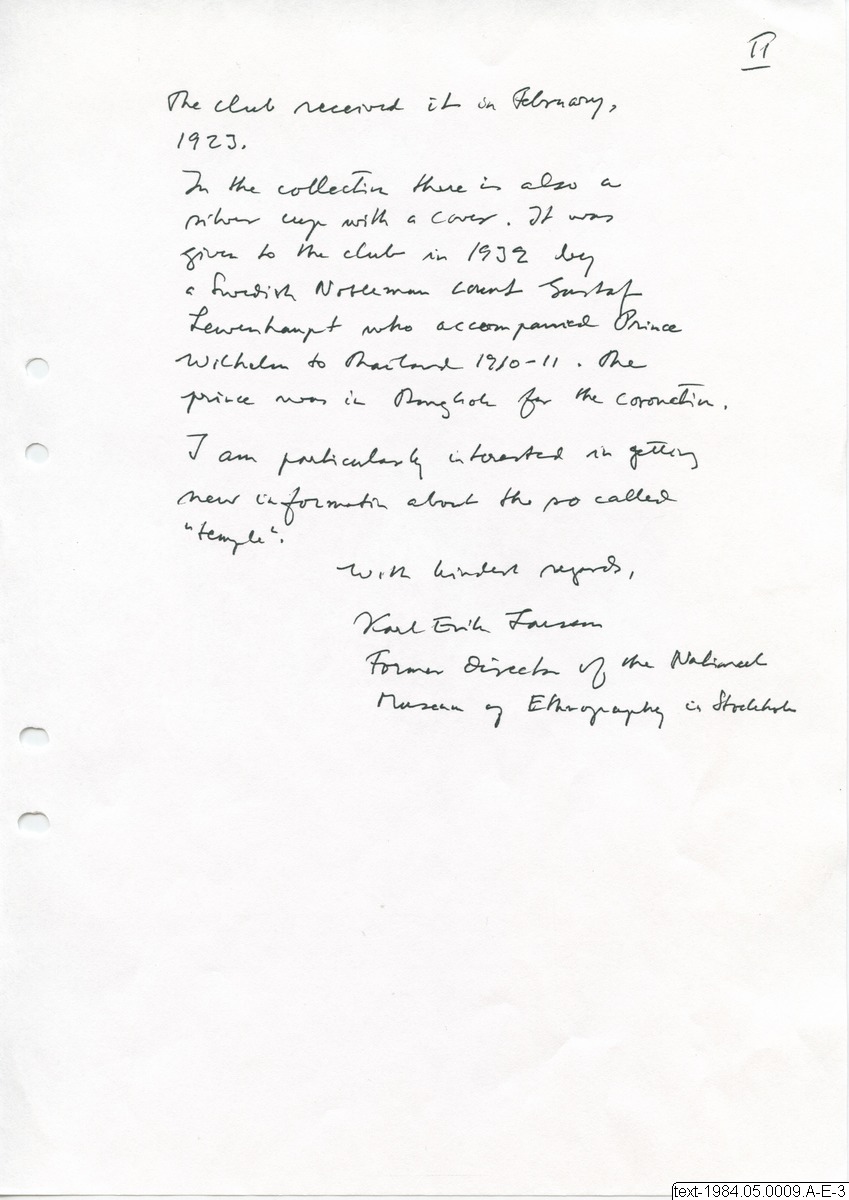 II
The club received it in February,
1923.
In the collection there is also a
silver cup with a cover. It was
given to the club in 1939 by
a Swedish Nobleman Count Gustaf
Lewenhaupt who accompanied Prince
Wilhelm to Thailand 1910-11. The
prince was in Bangkok for the coronation.
I am particularly interested in getting
new information about the so called
"temple".
With kindest regards,
Karl Erik Larsson
Former Director of the National
Museum of Ethnography in Stockholm
text-1984.05.0009.A-E-3